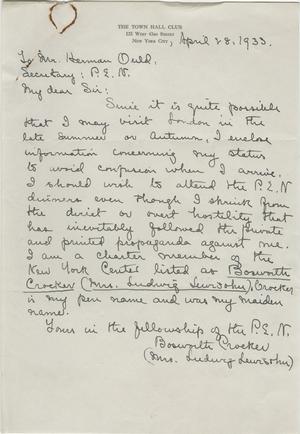 THE TOWN HALL CLUB
123 WEST 43RD STREET
NEW YORK CITY, April 28, 1933.
To Mr. Herman Ould,
Secretary: P.E.N.
My dear Sir:
Since it is quite possible
that I may visit London in the
late summer or Autumn, I enclose
information concerning my status
to avoid confusion when I arrive.
I should wish to attend the P.E.N
dinners even though I shrink from
the direct or overt hostility that
has inevitably followed the private
and printed propaganda against me.
I am a charter member of the
New York Center listed as Bosworth
Crocker (Mrs. Ludwig Lewisohn), Crocker
is my pen name and was my maiden
name.
Yours in the fellowship of the P.E.N.
Bosworth Crocker
(Mrs. Ludwig Lewisohn)